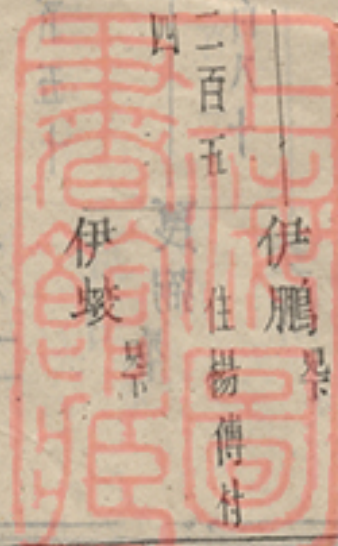 二百五
四
伊鵬 見下
住楊傅村
伊蛟 見下